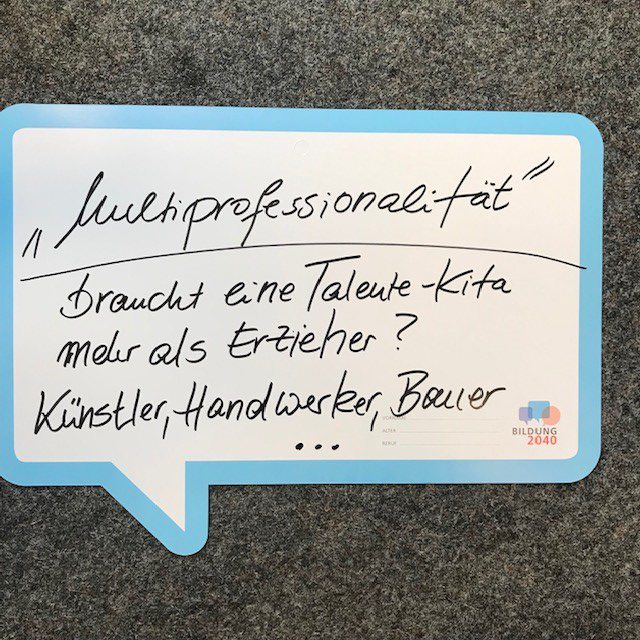 „Multiprofessionalität"
braucht eine Talente-Kita
mehr als Erzieher?
Künstler, Handwerker, Bauer
...
ALTER
BERUF
BILDUNG
2040